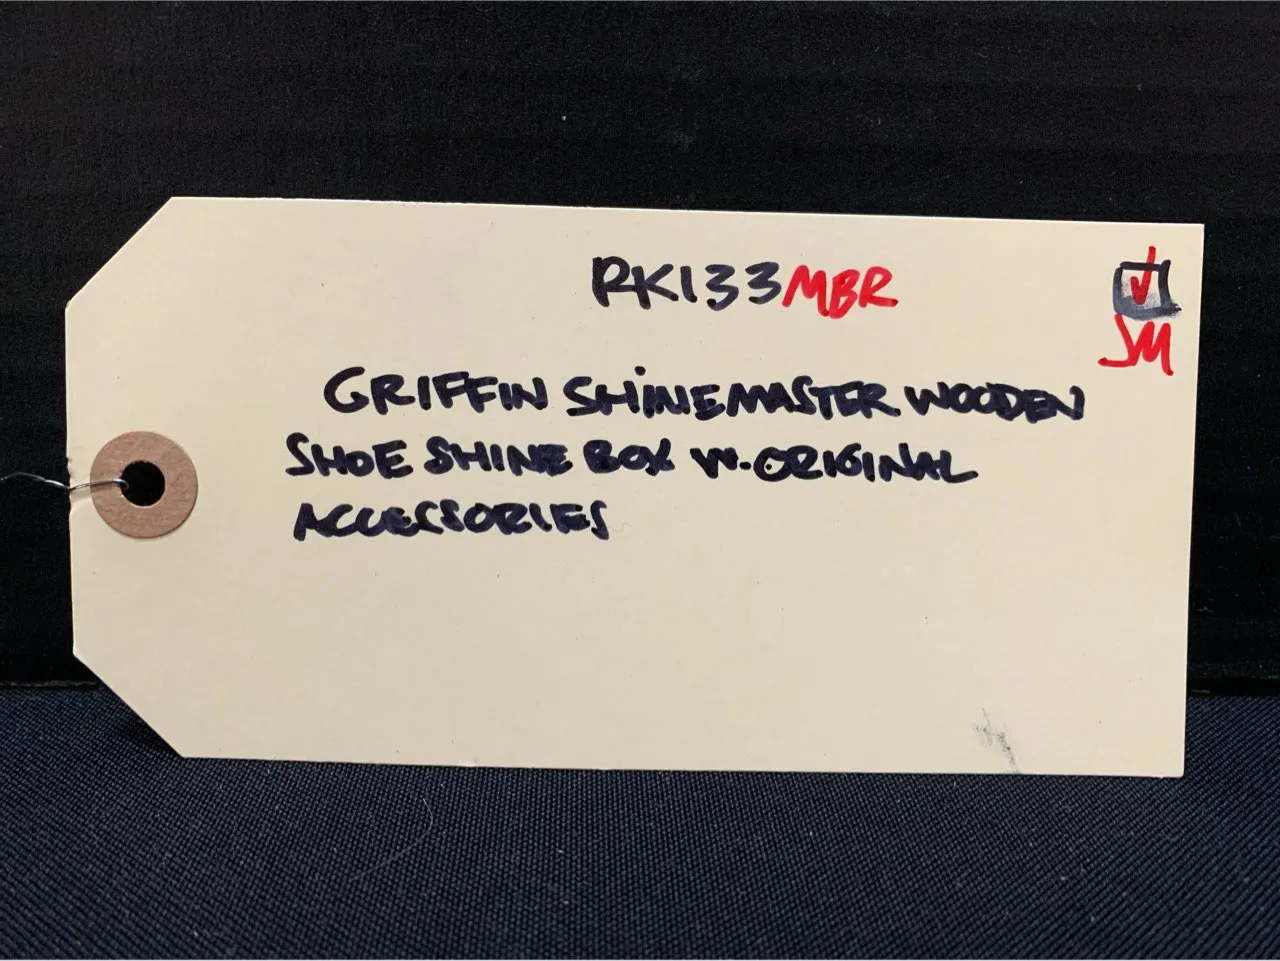 RK133MBR
SM
GRIFFIN SHINEMASTER WOODEN
SHOE SHINE BOX W. ORIGINAL
ACCESSORIES